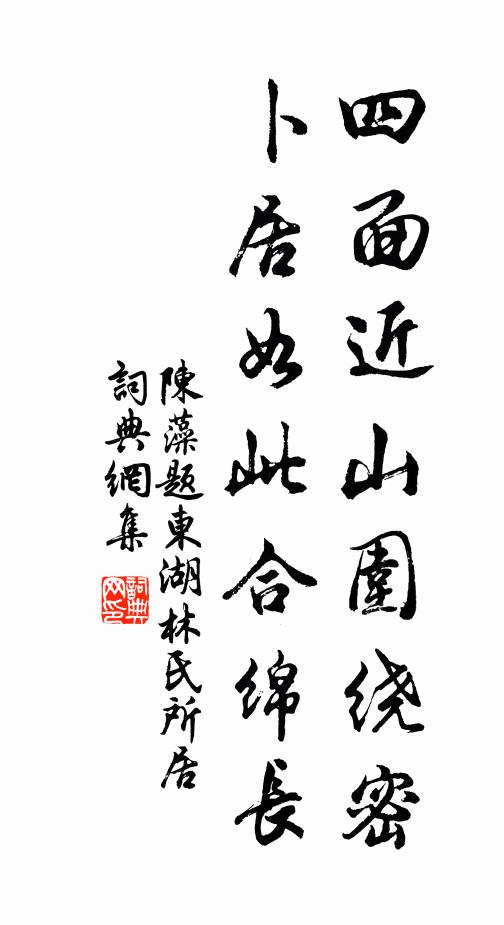 四面近山圍绕密
卜居如此合绵長
陳藻题東湖林氏所居
詞典網集
詞典网印